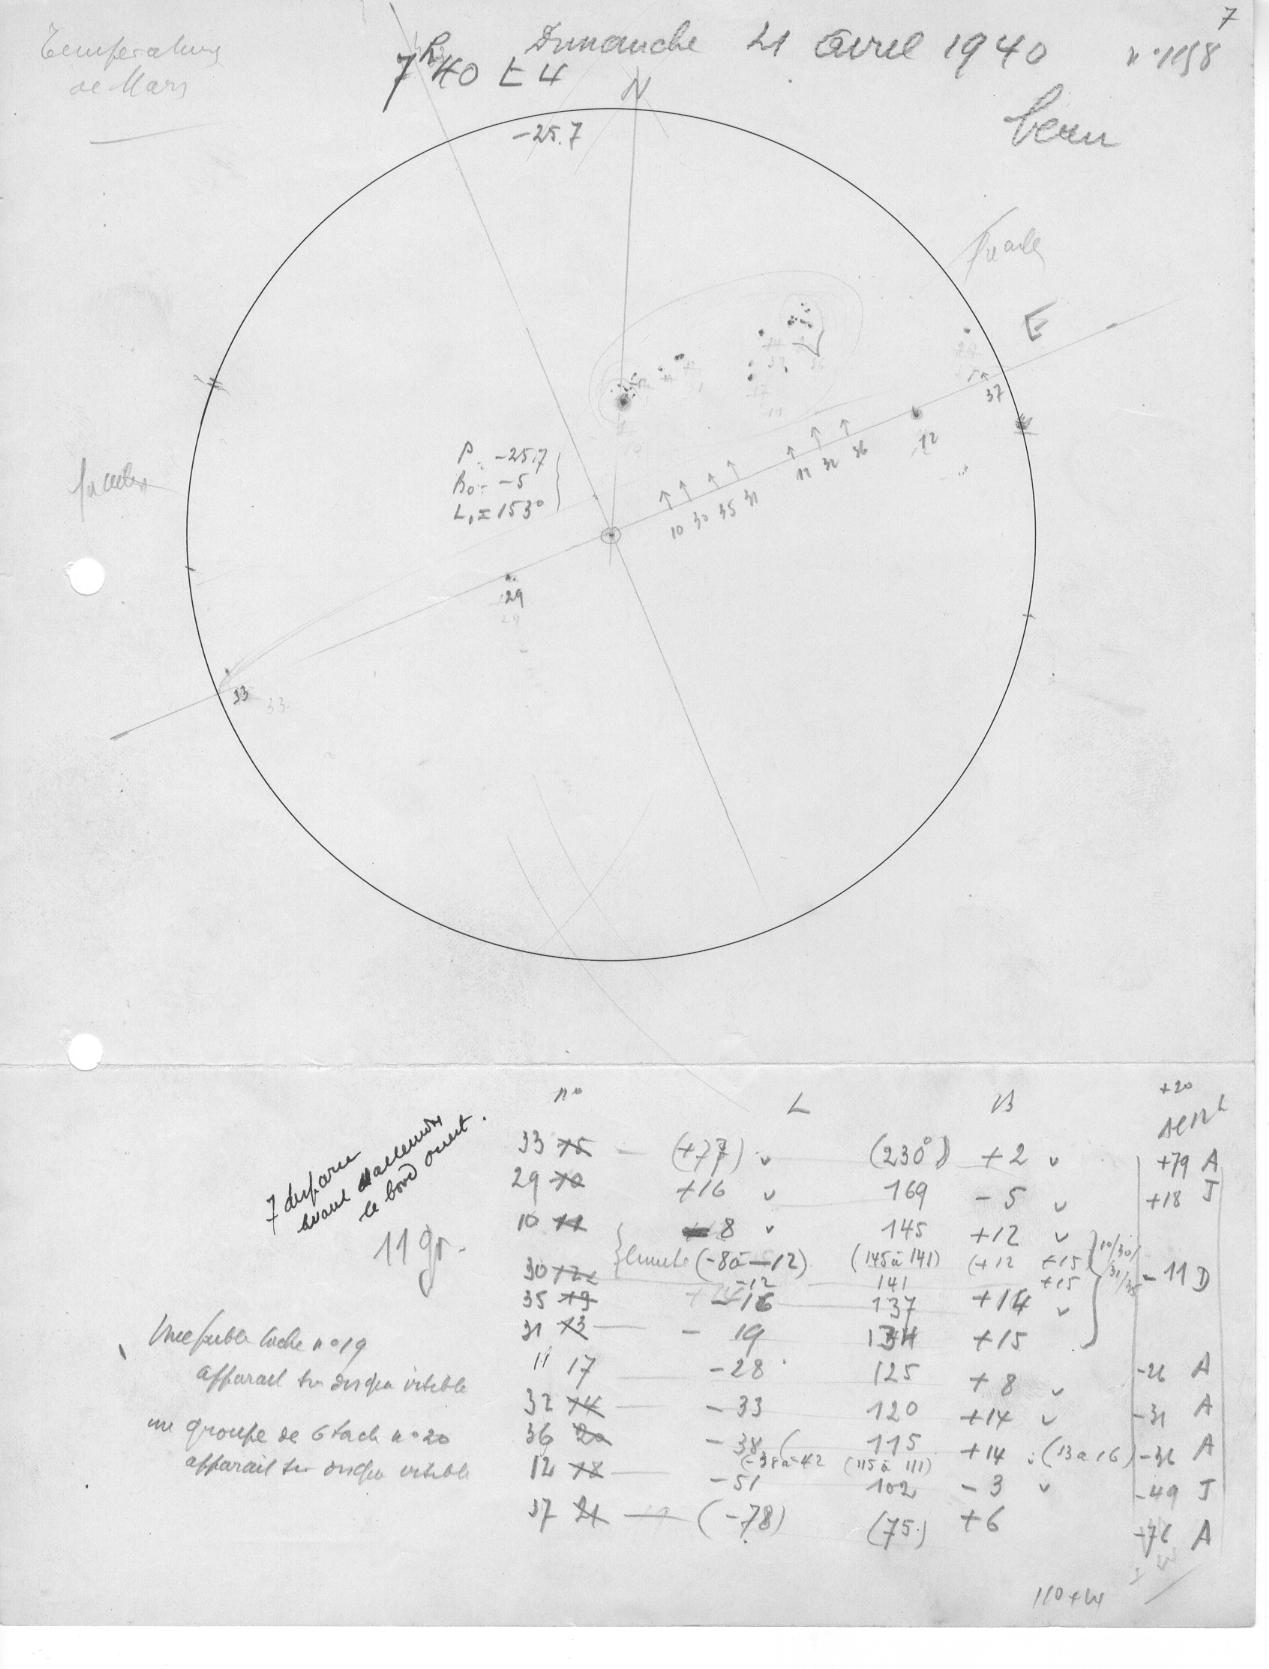 7
Dimanche 21 avril 1940
n° 1158
7h40 t 4
Temperature
de Mars
N
beau
-25.7
E
37
12
P = -25.7
Bo = -5
Lo = 153°
10 30 35 31 11 32 36
29
29
33
33
n° L B +20
33 15 — (+77) v (230°) +2 v +79 A
29 10 +16 v 169 -5 v +18 J
10 11 -8 v 145 +12 v
(-8 à -12) (145 à 141) (+12 +15) 10/30/
30 12 -12 141 +15 31/35 -11 D
35 19 — -16 137 +14 v
31 13 — -19 134 +15
11 17 — -28 125 +8 v -26 A
32 14 — -33 120 +14 v -31 A
36 20 -38 115 +14 (13 à 16) -36 A
(-38 à -42 (115 à 111)
12 18 — -51 102 -3 v -49 J
37 21 — (-78) (75) +6 -76 A
7 disparu
avant d'atteindre
le bord ouest.
11 gr.
Une faible tache n° 19
apparait sur disque visible
un groupe de 6 tach n° 20
apparait sur disque visible
110 + 44